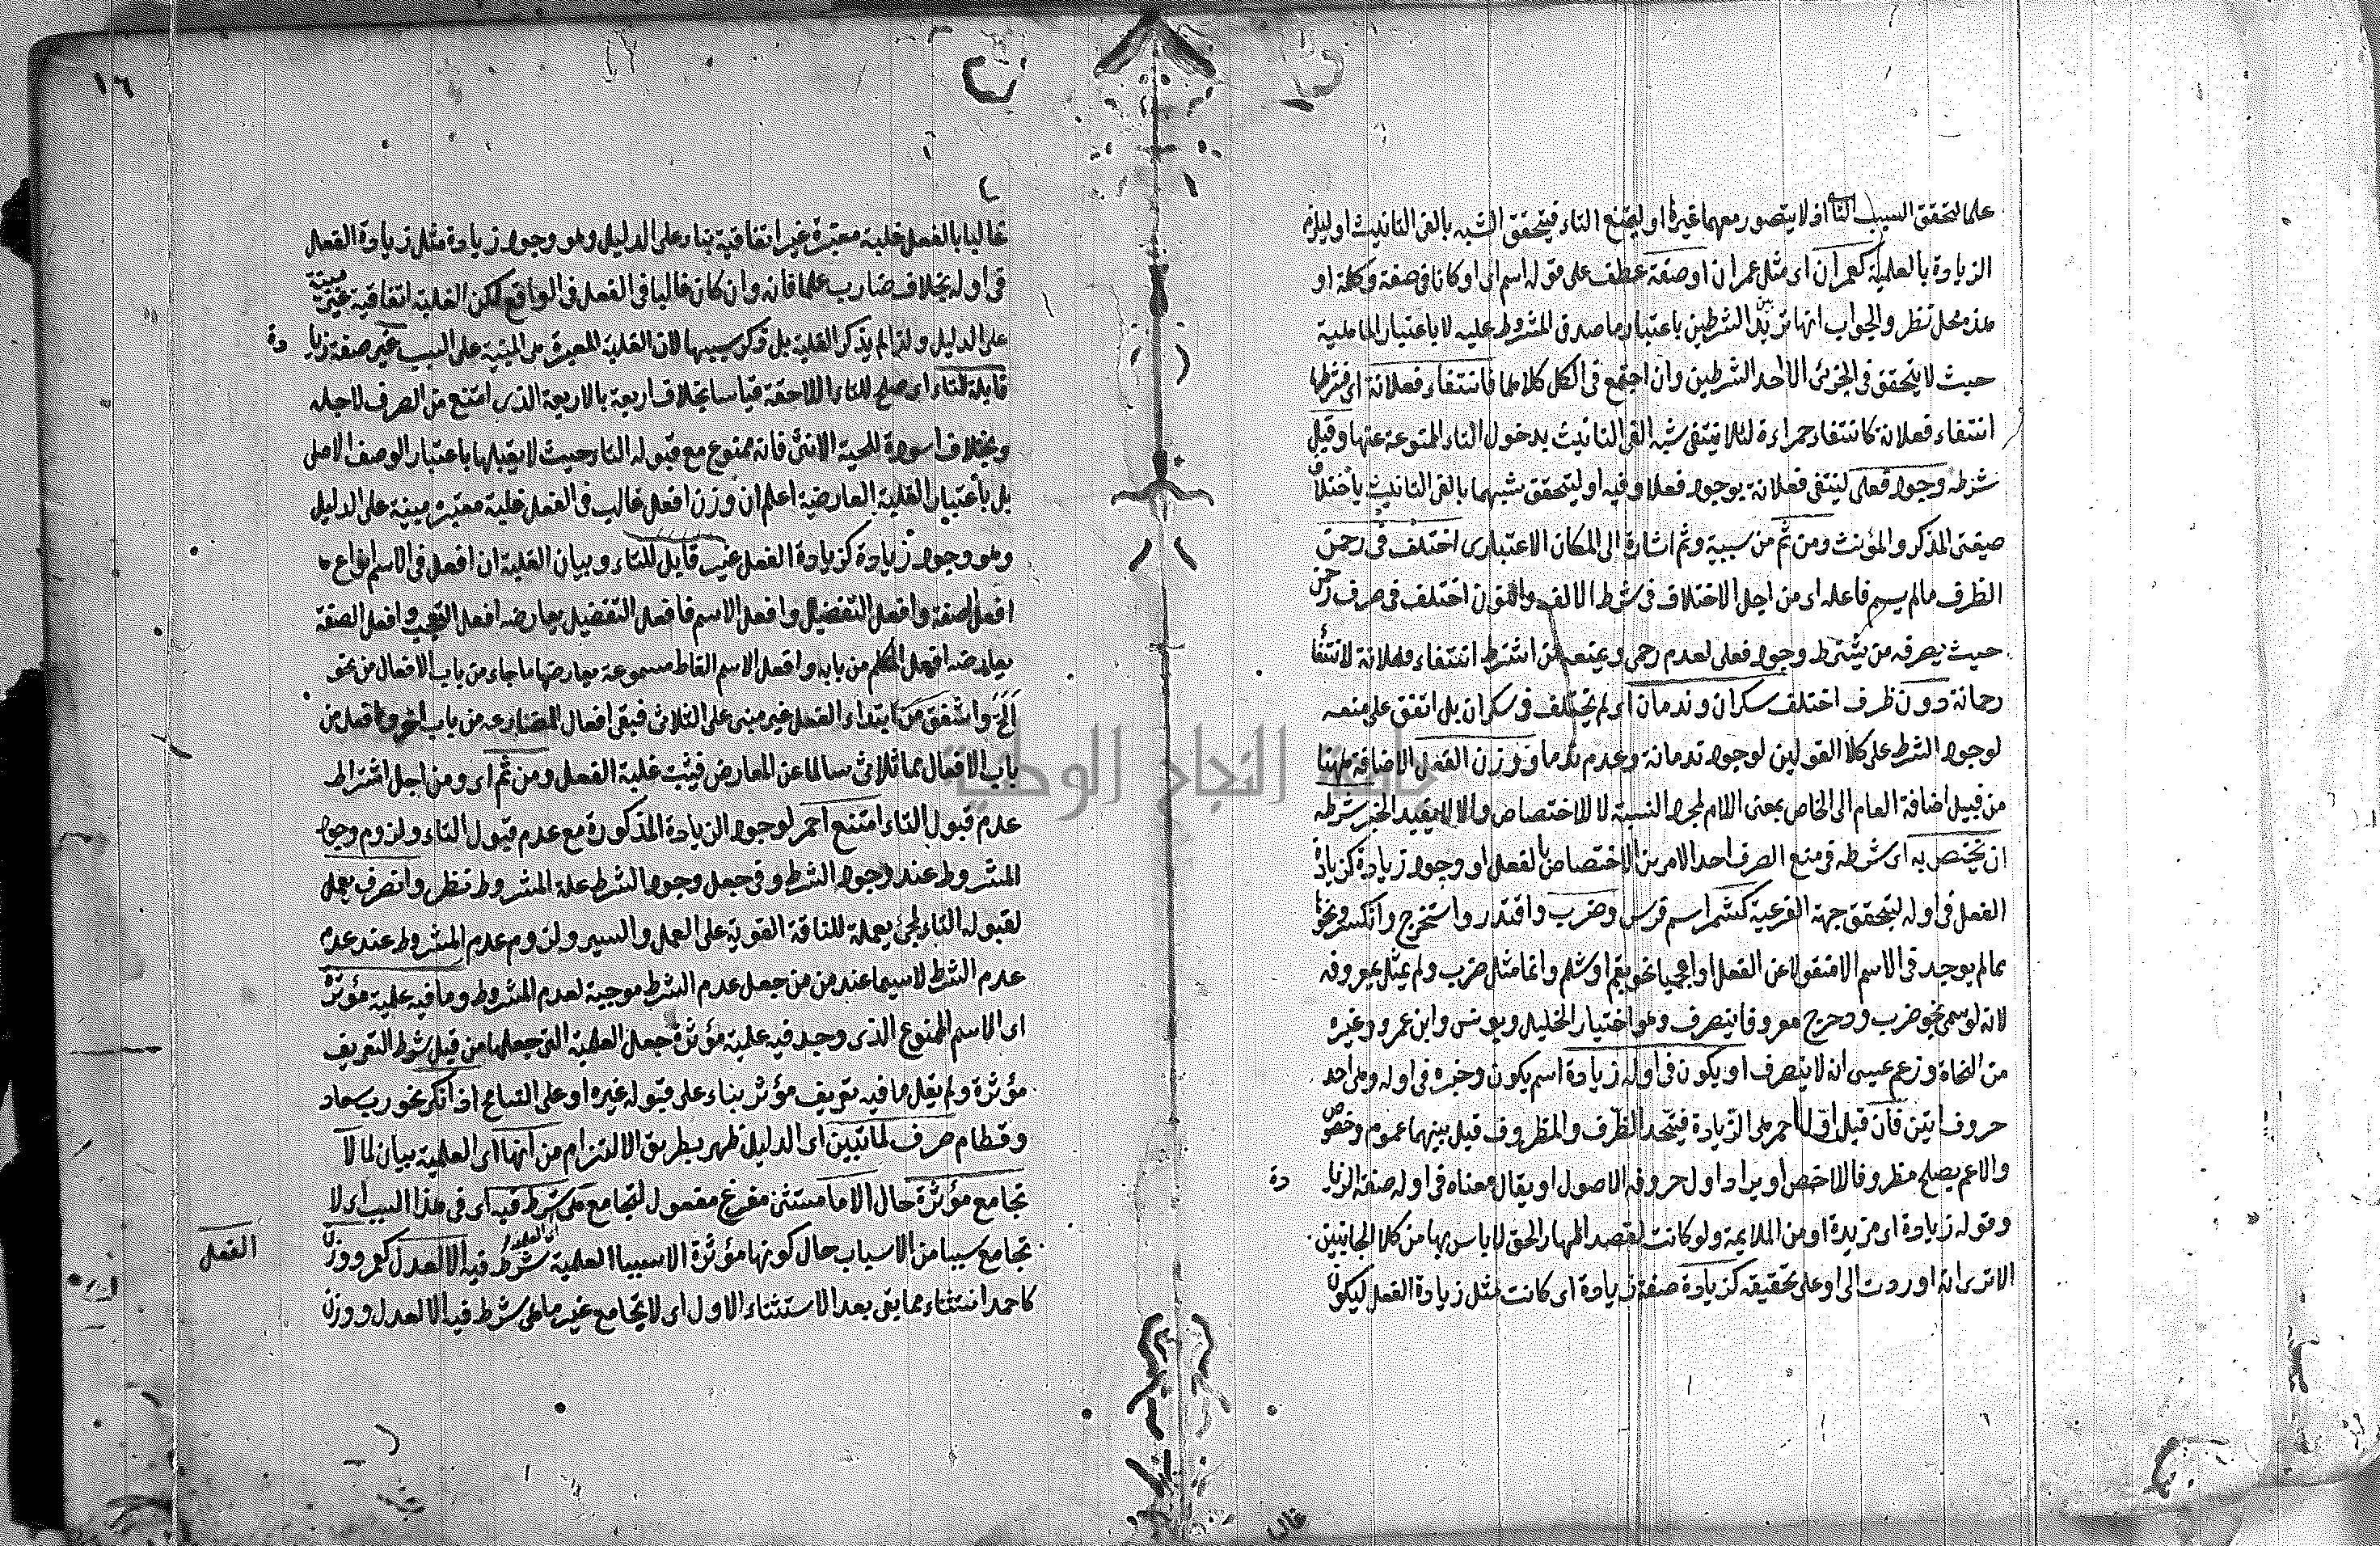 علما لتحقق السبب الثانى اذ لا يتصور معهما غيره او ليمتنع التاء فيتحقق الشبه بالفى التانيث او ليلزم
الزيادة بالعلمية كعمران اى مثل عمران او صفة عطف على قوله اسم اى او كانا فى صفة وكلمة او
هذه محل نظر والجواب انها تريد بين الشرطين باعتبار ما صدق المشروط عليه لا باعتبار الماهية
حيث لا يتحقق فى الجزئى الا احد الشرطين وان اجتمع فى الكل كلاهما فانتفاء فعلانة اى فشرطها
انتفاء فعلانة كانتفاء حمراءة لئلا ينتفى شبه الفى التانيث بدخول التاء الممنوعة عنها وقيل
شرطه وجود فعلى لينتفى فعلانة بوجود فعلا وفيه او ليتحقق شبهها بالفى التانيث باختلاف
صيغتى المذكر والمؤنث ومن ثم من سببية وثم اشارة الى المكان الاعتبارى اختلف فى رحمن
الظرف مالم يسم فاعله اى من اجل الاختلاف فى شرط الالف والنون اختلف فى صرف رحمن
حيث يصرفه من يشترط وجود فعلى لعدم رحمى ويمنعه من اشترط انتفاء فعلانة لانتفاء
رحمانة دون ظرف اختلف سكران وندمان اى لم يختلف فى سكران بل اتفق على منعه
لوجود الشرط على كلا القولين لوجود ندمانة وعدم ندما ووزن الفعل الاضافة ههنا
من قبيل اضافة العام الى الخاص بمعنى اللام لمجرد النسبة لا للاختصاص والا لا يفيد الخبر شرطه
ان يختص به اى شرطه فى منع الصرف احد الامرين الاختصاص بالفعل او وجود زيادة كزيادة
الفعل فى اوله ليتحقق جهة الفرعية كشمر اسم فرس وضرب واقتدر واستخرج وانكسر ونحوها
مما لم يوجد فى الاسم الا منقولا عن الفعل او اعجميا نحو بقم او شلم وانما مثل ضرب ولم يمثل بمعروفه
لانه لو سمى نحو ضرب ودحرج معروفا ينصرف وهو اختيار الخليل ويونس وابن عمرو وغيره
من النحاة وزعم عيسى انه لا ينصرف او يكون فى اوله زيادة اسم يكون وخبره فى اوله وهى احد
حروف اتين فان قيل اول احمر هى الزيادة فيتحد الظرف والمظروف قيل بينهما عموم وخصوص
والاعم يصلح مظروفا للاخص او يراد اول حروفه الاصول او يقال معناه فى اوله صفة الزيادة
وقوله زيادة اى مزيدة او من الملايمة ولو كانت لقصد اظهار الحق لا باس بها من كلا الجانبين
الا ترى انه اوردت الى او على تحقيقه كزيادة صفة زيادة اى كانت مثل زيادة الفعل ليكون
غالبا
١٦
غالبا بالفعل غلبة معتبرة غير اتفاقية بناء على الدليل وهو وجود زيادة مثل زيادة الفعل
فى اوله بخلاف ضارب علما فانه وان كان غالبا فى الفعل فى الواقع لكن الغلبة اتفاقية غير مبنية
على الدليل ولذا لم يذكر الغلبة بل ذكر سببها لان الغلبة المعتبرة هى المبنية على السبب غير صفة زيادة
قابلة للتاء اى صلح للتاء اللاحقة قياسا بخلاف اربعة بالاربعة الذى امتنع من الصرف لاجله
وبخلاف اسودة للحية الانثى فانه ممنوع مع قبوله التاء حيث لا يقبلها باعتبار الوصف الاصل
بل باعتبار الغلبة العارضية اعلم ان وزن افعل غالب فى الفعل غلبة معتبرة مبنية على الدليل
وهو وجود زيادة كزيادة الفعل غير قابل للتاء وبيان الغلبة ان افعل فى الاسم انواع
افعل الصفة وافعل التفضيل وافعل الاسم فافعل التفضيل يعارضه افعل التعجب وافعل الصفة
يعارضه افعل المتكلم من بابه وافعل الاسم الفاظ مسموعة يعارضها ما جاء من باب الافعال من نحو
واشفق من ابتداء الفعل غير مبنى على الثلاثى فبقى افعال المضارعه من باب اخر وافعل من
باب الافعال مما ثلاثى سالما عن المعارض فيثبت غلبة الفعل ومن ثم اى ومن اجل اشتراط
عدم قبول التاء امتنع احمر لوجود الزيادة المذكورة مع عدم قبول التاء ولزوم وجود
المشروط عند وجود الشرط وفى جعل وجود الشرط علة المشروط نظر وانصرف يعمل
لقبوله التاء لمجئ يعملة للناقة القوية على العمل والسير ولزوم عدم المشروط عند عدم
عدم الشرط لاسيما عند من جعل عدم الشرط موجبة لعدم المشروط وما فيه علمية مؤثرة
اى الاسم الممنوع الذى وجد فيه علمية مؤثرة جعل العلمية التى جعلها من قبل شرط التعريف
مؤثرة ولم يقل ما فيه تعريف مؤثر بناء على قبوله غيره او على التسامح اذ انكر نحو رب سعاد
وقطام صرف لما تبين اى الدليل ظهر بطريق الالتزام من انها اى العلمية بيان لما لا
تجامع مؤثرة حال الا ما مستثنى مفرغ مفعول لتجامع هى شرط فيه اى فى هذا السبب اى لا
تجامع سببا من الاسباب حال كونها مؤثرة الا سببا العلمية شرط فيه الا العدل كعمر ووزن الفعل
كاحمد استثناء مما بقى بعد الاستثناء الاول اى لا يجامع غير ما هى شرط فيه الا العدل ووزن
جامعة النجاح الوطنية